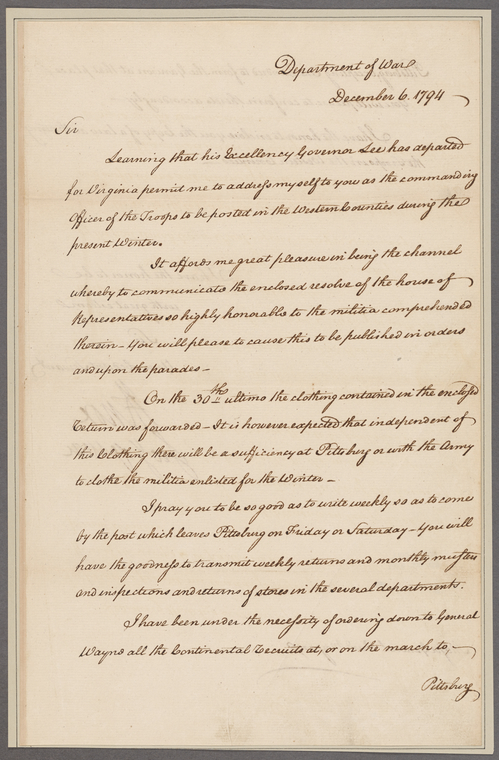 Department of War
December 6. 1794
Sir
Learning that his Excellency Governor Lee has departed
for Virginia permit me to address myself to you as the commanding
Officer of the Troops to be posted in the Western Counties during the
present Winter.
It affords me great pleasure in being the channel
whereby to communicate the enclosed resolve of the house of
Representatives so highly honorable to the militia comprehended
therein - You will please to cause this to be published in orders
and upon the parades -
On the 30th ultimo the clothing contained in the enclosed
return was forwarded - It is however expected that independent of
this Clothing there will be a sufficiency at Pittsburg or with the Army
to clothe the militia enlisted for the Winter -
I pray you to be so good as to write weekly so as to come
by the post which leaves Pittsburg on Friday or Saturday - You will
have the goodness to transmit weekly returns and monthly musters
and inspections and returns of stores in the several departments.
I have been under the necessity of ordering down to General
Wayne all the Continental recruits at, or on the march to -
Pittsburg